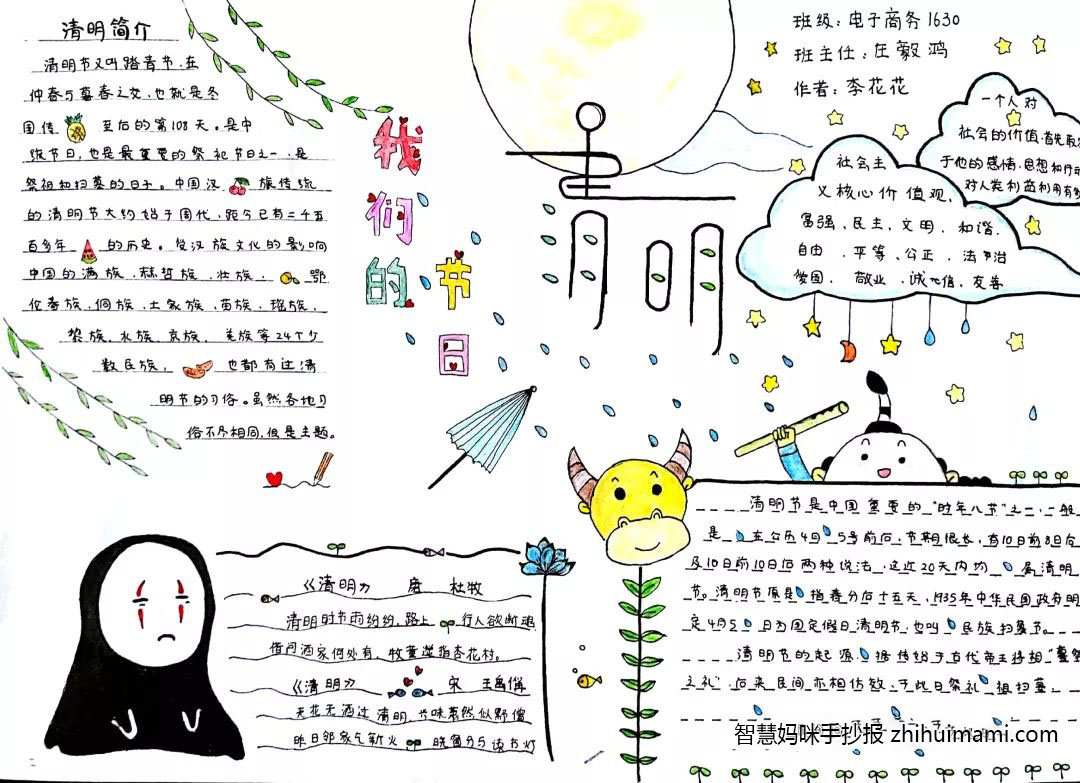 清明简介
清明节又叫踏青节,在
仲春与暮春之交,也就是冬
至后的第108天。是中
国传
统节日,也是最重要的祭祀节日之一,是
祭祖和扫墓的日子。中国汉 族传统
的清明节大约始于周代,距今已有二千五
百多年 的历史。受汉族文化的影响
中国的满族、赫哲族、壮族、 鄂
伦春族、侗族、土家族、苗族、瑶族、
黎族、水族、京族、羌族等24个少
数民族, 也都有过清
明节的习俗。虽然各地习
俗不尽相同,但是主题。
我们的节日
清明
班级:电子商务1630
班主任:庄毅鸿
作者:李花花
一个人对
社会的价值,首先取
于他的感情、思想和行动
对人类利益利用有
社会主
义核心价值观,
富强、民主、文明、和谐、
自由、平等、公正、法治
爱国、敬业、诚信、友善
《清明》 唐 杜牧
清明时节雨纷纷,路上 行人欲断魂
借问酒家何处有,牧童遥指杏花村。
《清明》 宋 王禹偁
无花无酒过清明,兴味萧然似野僧
昨日邻家乞新火 晓窗分与读书灯
清明节是中国重要的“时年八节”之一,一般
是 在公历4月5号前后,节期很长,有10日前8日后
及10日前10日后两种说法,这近20天内均 属清明
节。清明节原是 指春分后十五天,1935年中华民国政府明
定4月5 日为国定假日清明节,也叫 民族扫墓节。
清明节的起源 据传始于古代帝王将相“墓祭
之礼”,后来民间亦相仿效,于此日祭礼 祖扫墓,
智慧妈咪手抄报 zhihuimami.com